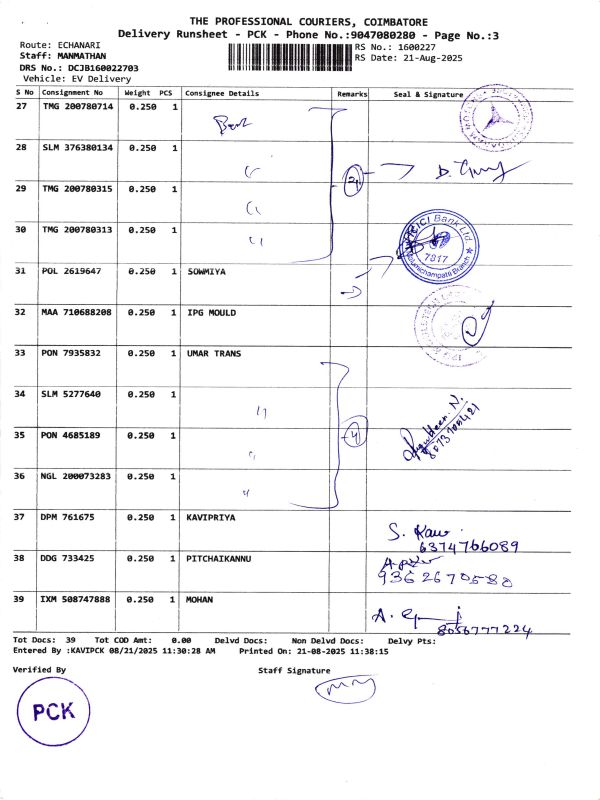 THE PROFESSIONAL COURIERS, COIMBATORE
Delivery Runsheet - PCK - Phone No.:9047080280 - Page No.:3
Route: ECHANARI
RS No.: 1600227
Staff: MANMATHAN
RS Date: 21-Aug-2025
DRS No.: DCJB160022703
Vehicle: EV Delivery
S No Consignment No Weight PCS Consignee Details Remarks Seal & Signature
27 TMG 200780714 0.250 1
28 SLM 376380134 0.250 1
29 TMG 200780315 0.250 1
30 TMG 200780313 0.250 1
ICICI Bank Ltd.
7017
31 POL 2619647 0.250 1 SOWMIYA
32 MAA 710688208 0.250 1 IPG MOULD
33 PON 7935832 0.250 1 UMAR TRANS
34 SLM 5277640 0.250 1
35 PON 4685189 0.250 1 4
36 NGL 200073283 0.250 1
37 DPM 761675 0.250 1 KAVIPRIYA
6374766089
38 DDG 733425 0.250 1 PITCHAIKANNU
9362670580
39 IXM 508747888 0.250 1 MOHAN
8056777224
Tot Docs: 39 Tot COD Amt: 0.00 Delvd Docs: Non Delvd Docs: Delvy Pts:
Entered By :KAVIPCK 08/21/2025 11:30:28 AM Printed On: 21-08-2025 11:38:15
Verified By Staff Signature
PCK